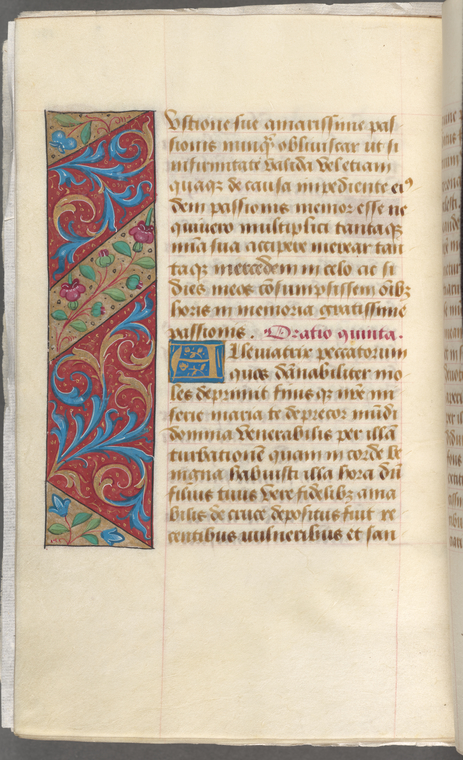 Ustione sue amarissime pas
sionis nunq̃ obliviscar ut si
infirmitate valida vel etiam
quaq; de causa impediente eiꝰ
dem passionis memor esse ne
quivero multiplici tantaq;
mĩa sua accipere merear tan
taq; mercedem in celo ac si
dies meos cõsumpsissem oĩbꝫ
horis in memoria ceratissime
passionis. Oratio quinta.
Alleviatrix peccatorum
quos dãnabiliter mo
les deprimit huius q; nr̃e mi
serie maria te deprecor mũdi
domina venerabilis per illã
turbationẽ quam in corde be
nigna habuisti illa hora dũ
filius tuus vere fidelibꝫ ama
bilis de cruce depositus fuit re
centibus vulneribus et san